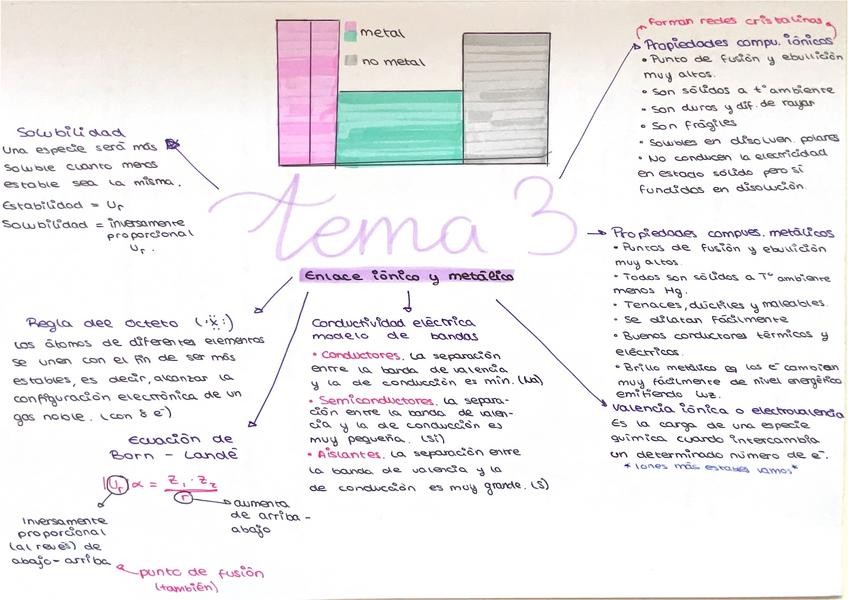 metal
no metal
forman redes cristalinas
Propiedades compu. iónicos
• Punto de fusión y ebullición
muy altos.
• Son sólidos a tª ambiente
• Son duros y dif. de rayar
• Son frágiles
• Solubles en disolven. polares
• No conducen la electricidad
en estado sólido pero sí
fundidos en disolución.
Solubilidad
Una especie será más
soluble cuanto menos
estable sea la misma.
Estabilidad = Ur
Solubilidad = inversamente
proporcional
Ur.
tema 3
Enlace iónico y metálico
Propiedades compues. metálicos
• Puntos de fusión y ebullición
muy altos.
• Todos son sólidos a Tª ambiente
menos Hg.
• Tenaces, dúctiles y maleables.
• Se dilatan fácilmente
• Buenos conductores térmicos y
eléctricos.
• Brillo metálico los e⁻ cambian
muy fácilmente de nivel energético
emitiendo luz.
Valencia iónica o electrovalencia
Es la carga de una especie
química cuando intercambia
un determinado número de e⁻.
*iones más estables vamos*
Regla del octeto (:ẍ:)
Los átomos de diferentes elementos
se unen con el fin de ser más
estables, es decir, alcanzar la
configuración electrónica de un
gas noble. (con 8 e⁻)
Conductividad eléctrica
modelo de bandas
• Conductores. La separación
entre la banda de valencia
y la de conducción es min. (Na)
• Semiconductores. la separa-
ción entre la banda de valen-
cia y la de conducción es
muy pequeña. (Si)
• Aislantes. la separación entre
la banda de valencia y la
de conducción es muy grande. (S)
Ecuación de
Born - Landé
|Ur| α = Z₁ · Z₂ / r
aumenta
de arriba -
abajo
Inversamente
proporcional
(al revés) de
abajo-arriba
punto de fusión
(también)